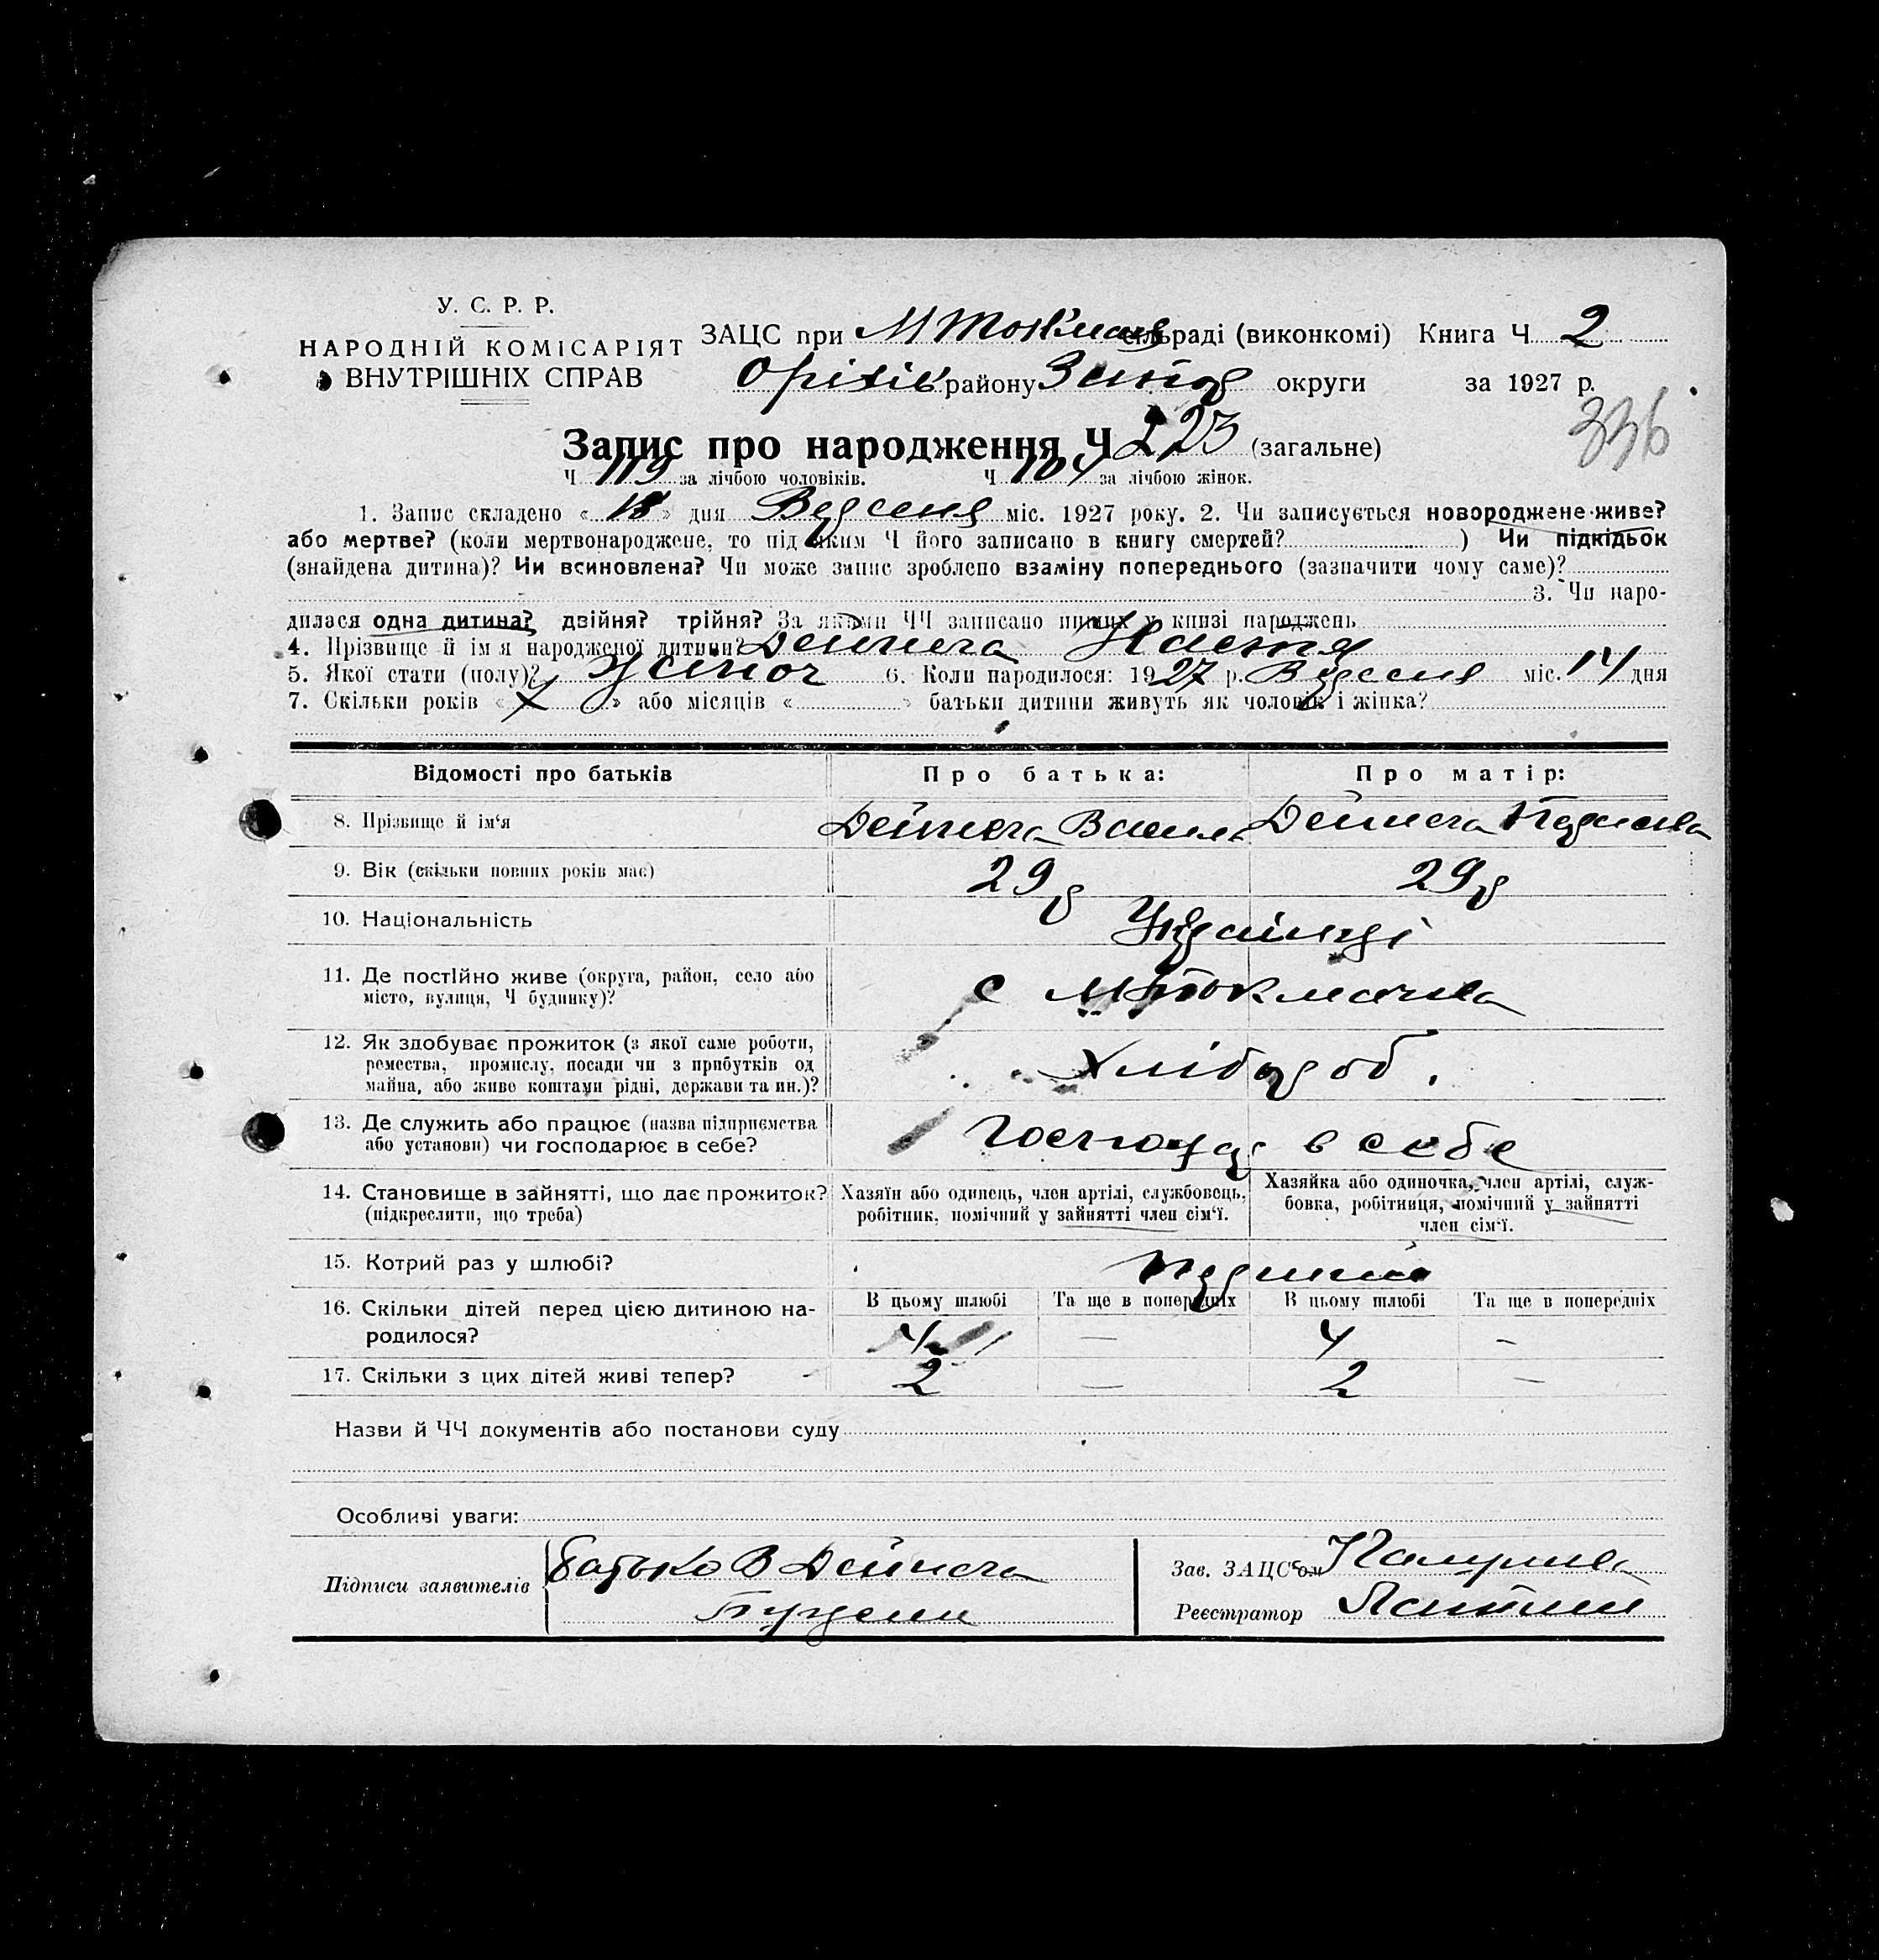 У. С. Р. Р.
НАРОДНІЙ КОМІСАРІЯТ
ВНУТРІШНІХ СПРАВ
ЗАЦС при М Токмач сільраді (виконкомі) Книга Ч 2
Оріхів району Запор округи за 1927 р.
336
Запис про народження Ч 223 (загальне)
Ч 119 за лічбою чоловіків. Ч 104 за лічбою жінок.
1. Запис складено « » дня Вересня міс. 1927 року. 2. Чи записується новороджене живе?
або мертве? (коли мертвонароджене, то під яким Ч його записано в книгу смертей? ) Чи підкідьок
(знайдена дитина)? Чи всиновлена? Чи може запис зроблено взаміну попереднього (зазначити чому саме)?
3. Чи наро-
дилася одна дитина? двійня? трійня? За якими ЧЧ записано инших у книзі народжень
4. Прізвище й ім я народженої дитини? Дейнега Настя
5. Якої стати (полу)? жіноч 6. Коли народилося: 1927 р. Вересня міс. 14 дня
7. Скільки років « х » або місяців « » батьки дитини живуть як чоловік і жінка?
Відомості про батьків Про батька: Про матір:
8. Прізвище й ім‘я Дейнега Василь Дейнега
9. Вік (скільки повних років має) 29 р 29 р
10. Національність Українці
11. Де постійно живе (округа, район, село або
місто, вулиця, Ч будинку)? с М Токмачка
12. Як здобуває прожиток (з якої саме роботи,
ремества, промислу, посади чи з прибутків од
майна, або живе коштами рідні, держави та ин.)? Хлібороб.
13. Де служить або працює (назва підприємства
або установи) чи господарює в себе? Господар в себе
14. Становище в зайнятті, що дає прожиток? Хазяїн або одинець, член артілі, службовець, Хазяйка або одиночка, член артілі, служ-
(підкреслити, що треба) робітник, помічний у зайнятті член сім‘ї. бовка, робітниця, помічний у зайнятті
член сім‘ї.
15. Котрий раз у шлюбі? Первий
16. Скільки дітей перед цією дитиною на- В цьому шлюбі Та ще в попередніх В цьому шлюбі Та ще в попередніх
родилося? 4 — 4 —
17. Скільки з цих дітей живі тепер? 2 — 2 —
Назви й ЧЧ документів або постанови суду
Особливі уваги:
Підписи заявителів Батько В Дейнега
Зав. ЗАЦС‘ом
Реєстратор